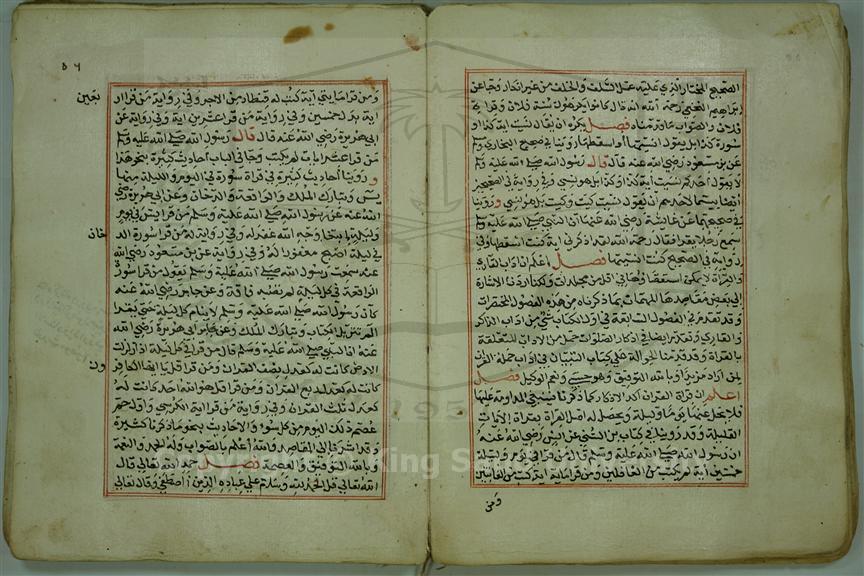 الصحيح المختار الذي عليه عمل السلف والخلف من غير انكار وجا عن
ابراهيم النخعي رحمه الله قال كانوا يكرهون سنة فلان وقراءة
فلان والصواب ما قدمناه فصل يكره ان يقال نسيت اية كذا او
سورة كذا بل يقول انسيتها او اسقطتها روينا في صحيح البخاري ومسلم
عن بن مسعود رضي الله عنه قال قال رسول الله صلى الله عليه وسلم
لا يقول احدكم نسيت اية كذا وكذا بل هو نسي وفي رواية في الصحيحين
ايضا بيسما لاحدهم ان يقول نسيت كيت وكيت بل هو نسي وروينا
في صحيحيهما عن عايشة رضي الله عنها ان النبي صلى الله عليه وسلم
سمع رجلا يقرا فقال رحمه الله لقد اذكرني اية كنت اسقطتها وفي
رواية في الصحيح كنت انسيتها فصل اعلم ان اداب القاري
والقراة لا يمكن استقصاوها في اقل من مجلدات ولكنا اردنا الاشارة
الى بعض مقاصدها المهمات بما ذكرناه من هذه الفصول المختصرات
وقد تقدم في الفصول السابقة في اول الكتاب شي من اداب الذاكر
والقاري وتقدم ايضا في اذكار الصلوات جمل من الاداب المتعلقة
بالقراة وقد قدمنا الحوالة على كتاب التبيان في اداب حملة القران
لمن اراد مزيدا وبالله التوفيق وهو حسبي ونعم الوكيل فصل
اعلم ان قراة القران اكد الاذكار كما ذكرنا فينبغي المداومة عليها
فلا يخل عنها يوما وليلة ويحصل له اصل القراة بقراة الايات
القليلة وقد روينا في كتاب بن السني عن انس رضي الله عنه
ان رسول الله صلى الله عليه وسلم قال من قرا في يوم وليلة
خمسين اية لم يكتب من الغافلين ومن قرا ماية اية كتب من القانتين
ومن
٥٦
ومن قرا مايتي اية كتب له قنطار من الاجر وفي رواية من قرا ار
بعين
اية بدل خمسين وفي رواية من قرا عشرين اية وفي رواية عن
ابي هريرة رضي الله عنه قال قال رسول الله صلى الله عليه وسلم
من قرا عشر ايات لم يكتب وجا في الباب احاديث كثيرة بنحو هذا
وروينا احاديث كثيرة في قراة سورة في اليوم والليلة منها
يس وتبارك الملك والواقعة والدخان وعن ابي هريرة رضي
الله عنه عن رسول الله صلى الله عليه وسلم من قرا يس في يوم
وليلة ابتغا وجه الله غفر له وفي رواية له من قرا سورة الد
خان
في ليلة اصبح مغفورا له وفي رواية عن بن مسعود رضي الله
عنه سمعت رسول الله صلى الله عليه وسلم يقول من قرا سورة
الواقعة في كل ليلة لم تصبه فاقة وعن جابر رضي الله عنه
كان رسول الله صلى الله عليه وسلم لا ينام كل ليلة حتى يقرا
الم تنزيل الكتاب وتبارك الملك وعن ابي هريرة رضي الله
عنه ان النبي صلى الله عليه وسلم قال من قرا في كل ليلة اذا زلزلت
الارض كانت له كعدل نصف القران ومن قرا قل يا ايها الكافر
ون
كانت له كعدل ربع القران ومن قرا قل هو الله احد كانت له
كعدل ثلث القران وفي رواية من قرا اية الكرسي واول حم
عصم ذلك اليوم من كل سو والاحاديث بنحو ما ذكرنا كثيرة
وقد اشرنا الى المقاصد والله اعلم بالصواب وله الحمد والنعمة
وبالله التوفيق والعصمة فصل حمد الله تعالى قال
الله تعالى قل الحمد لله وسلام على عباده الذين اصطفى وقال تعالى